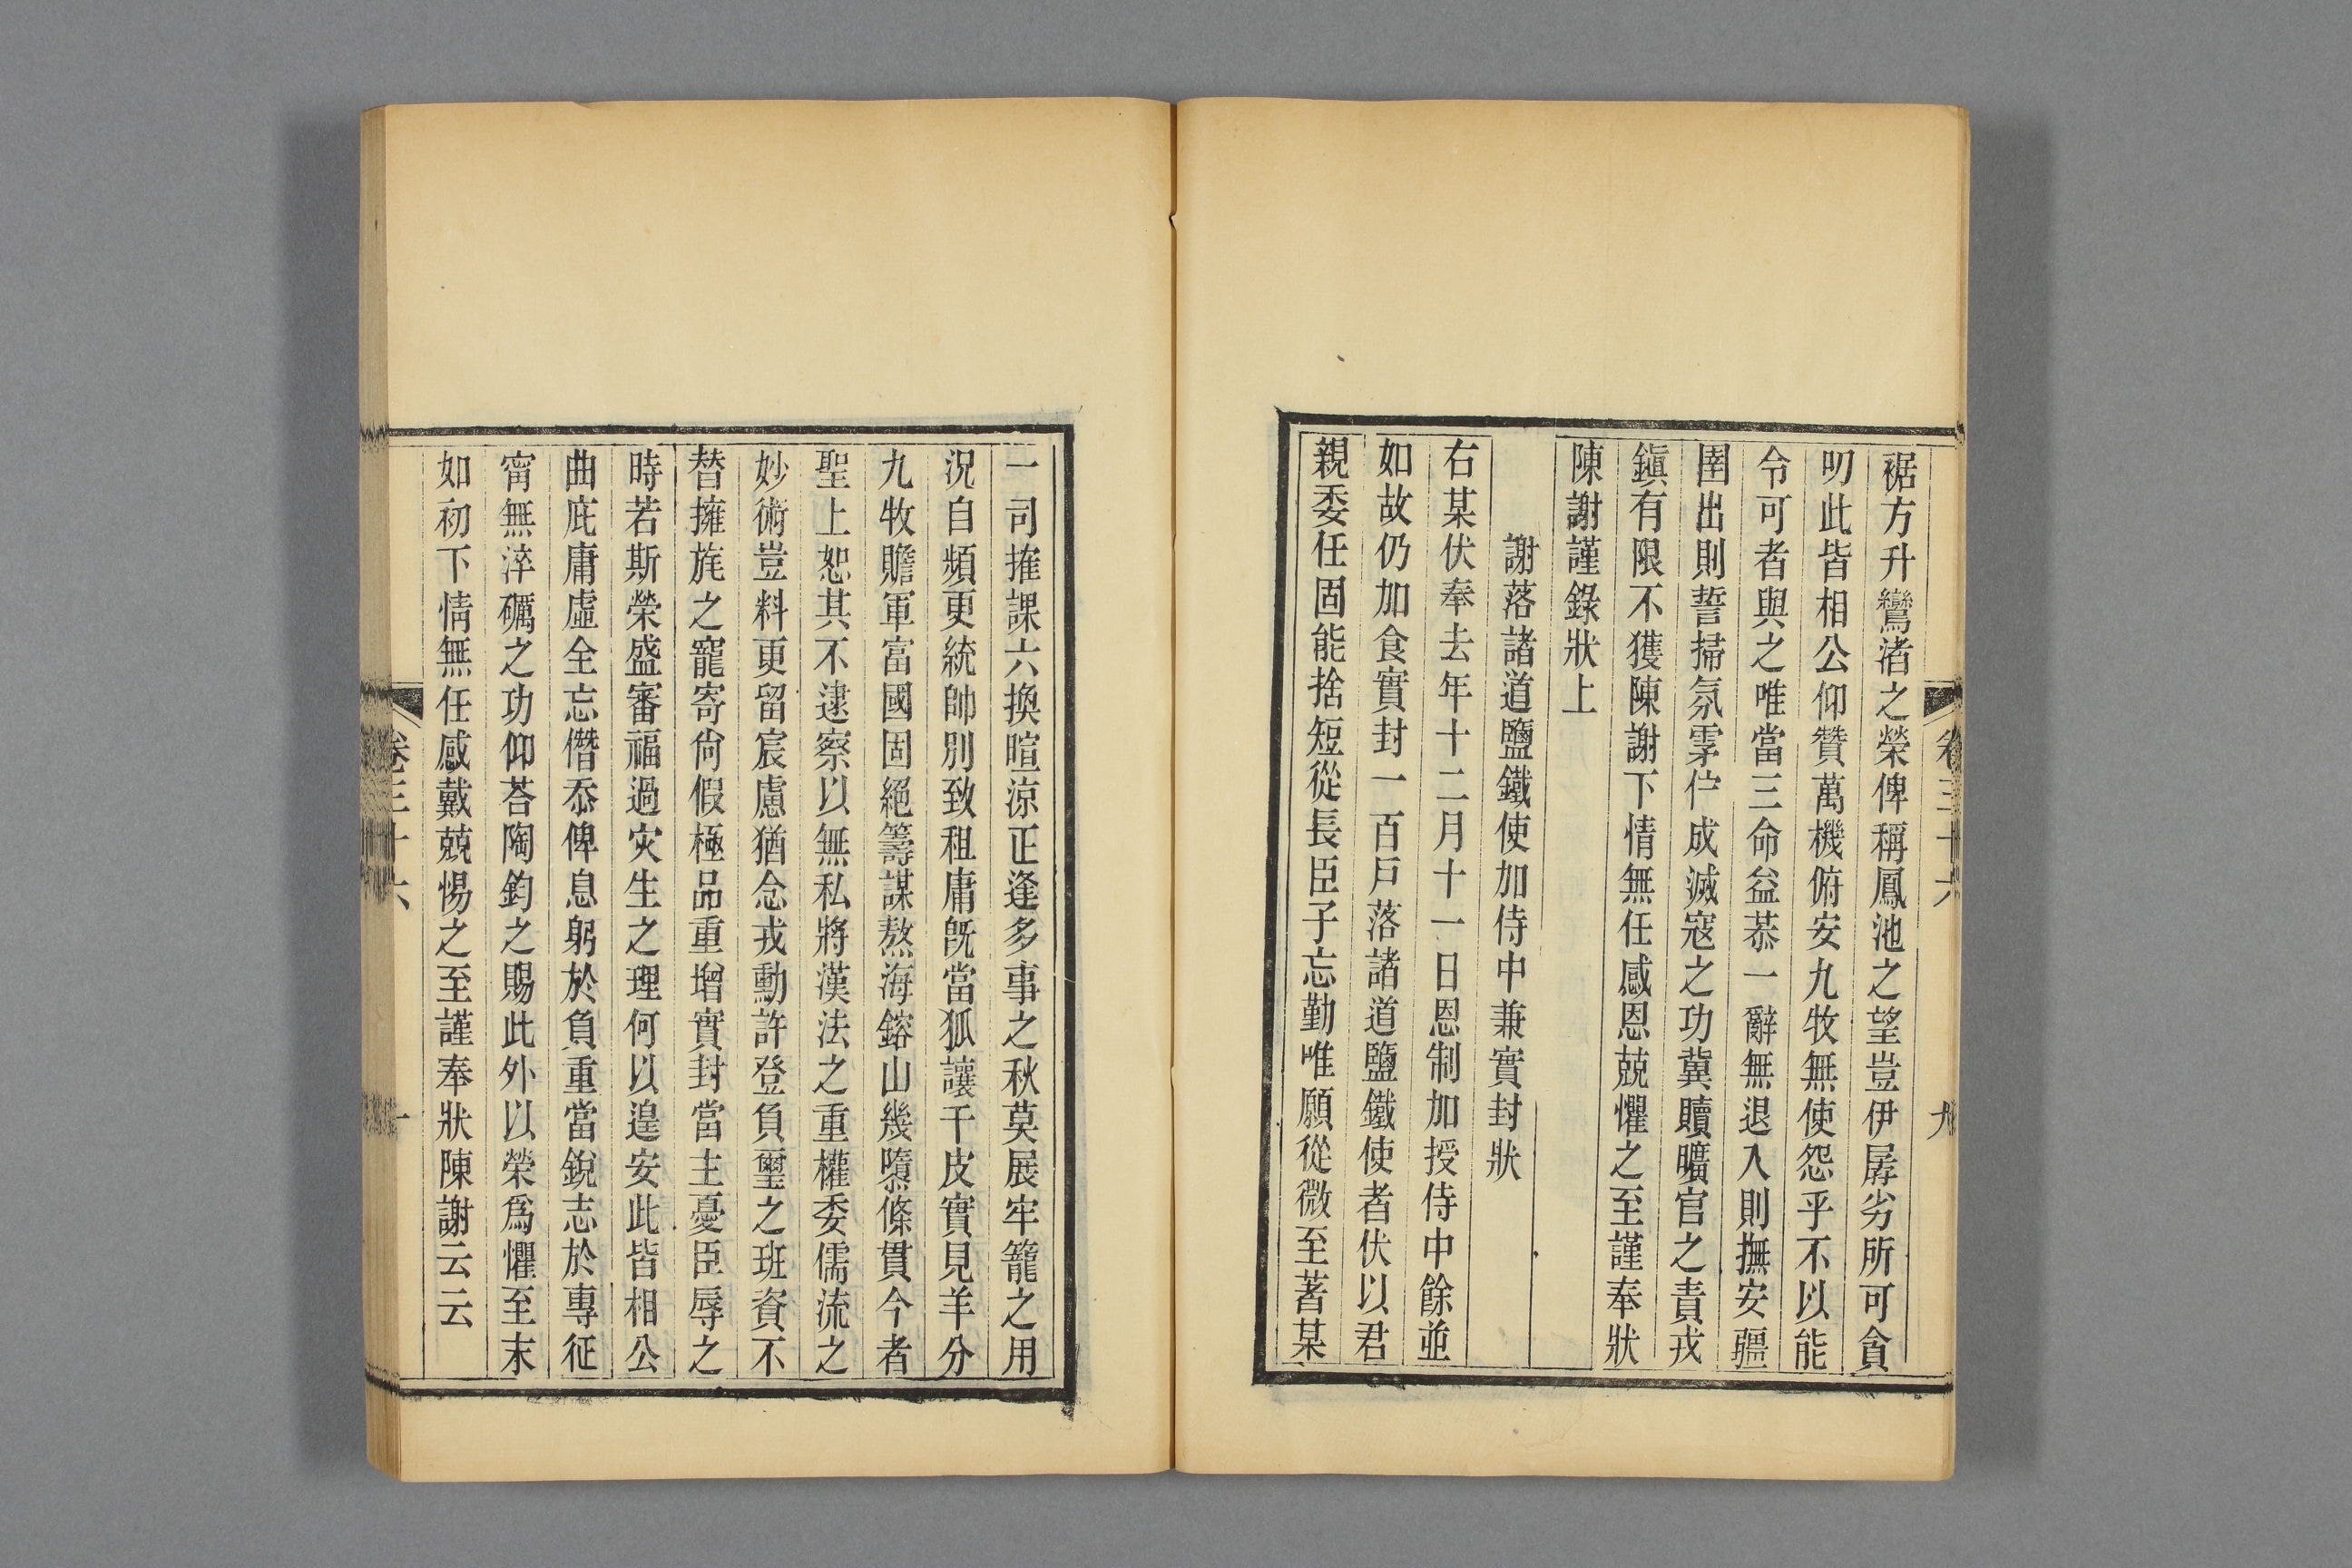 卷三十六
九
裾方升鸞渚之榮俾稱鳳池之望豈伊孱劣所可貪
叨此皆相公仰贊萬機俯安九牧無使怨乎不以能
令可者與之唯當三命益恭一辭無退入則撫安疆
圉出則誓掃氛雺伫成滅寇之功冀贖曠官之責戎
鎭有限不獲陳謝下情無任感恩兢懼之至謹奉狀
陳謝謹錄狀上
謝落諸道鹽鐵使加侍中兼實封狀
右某伏奉去年十二月十一日恩制加授侍中餘並
如故仍加食實封一百戶落諸道鹽鐵使者伏以君
親委任固能捨短從長臣子忘勤唯願從微至著某
一司搉課六換暄涼正逢多事之秋莫展牢籠之用
況自頻更統帥別致租庸旣當狐讓千皮實見羊分
九牧贍軍富國固絕籌謀熬海鎔山幾隳條貫今者
聖上恕其不逮察以無私將漢法之重權委儒流之
妙術豈料更留宸慮猶念戎勳許登負璽之班資不
替擁旄之寵寄尙假極品重增實封當主憂臣辱之
時若斯榮盛審福過灾生之理何以遑安此皆相公
曲庇庸虛全忘僭忝俾息躬於負重當銳志於專征
甯無淬礪之功仰荅陶鈞之賜此外以榮爲懼至末
如初下情無任感戴兢惕之至謹奉狀陳謝云云
卷三十六
十